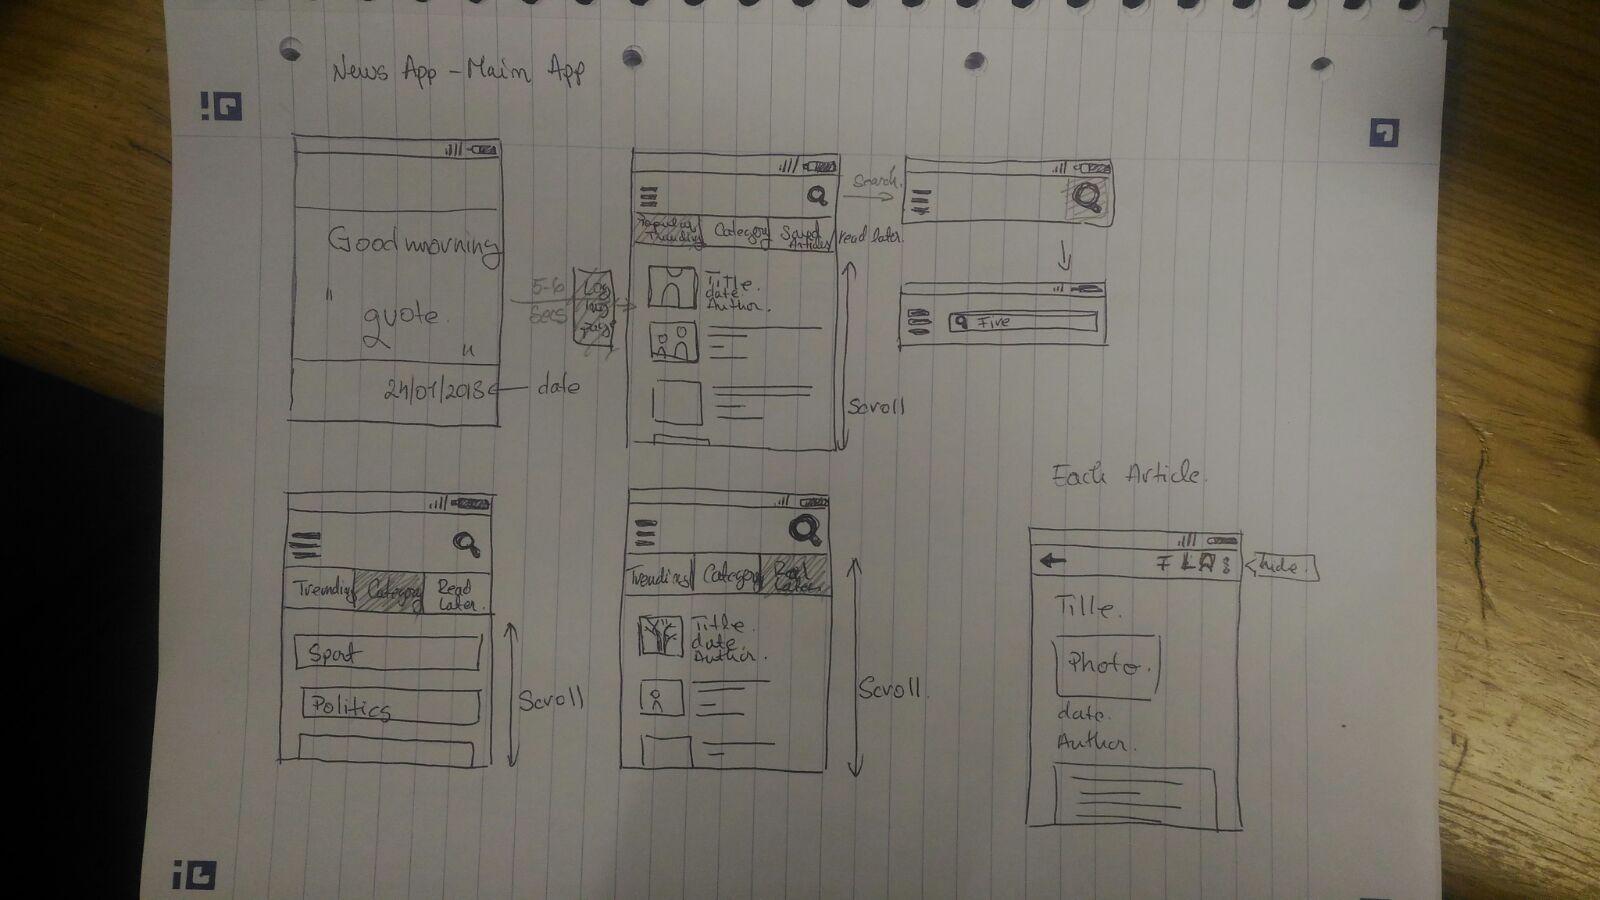 News App - Main App
Good morning
"
quote.
"
24/01/2018
date
5-6
Secs
Popular
Trending
Category
Saved
Articles
read later.
Search.
Title.
date.
Author.
Scroll
Five
Trending
Category
Read
Later.
Sport
Politics
Scroll
Trending
Category
Read
Later.
Title.
date.
Author.
Scroll
Each Article.
hide.
Title.
Photo.
date.
Author.